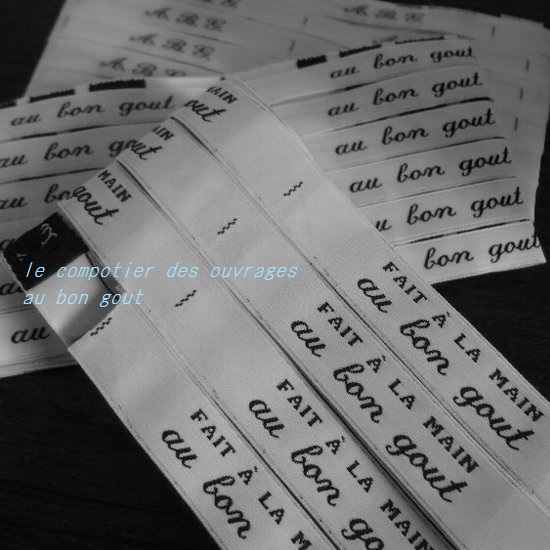 A. B. G.
A. B. G.
A. B. G.
au bon gout
au bon gout
au bon gout
au bon gout
au bon gout
au bon gout
au bon gout
au bon gout
au bon gout
au bon gout
au
au
MAIN
gout
gout
MAIN
gout
le compotier des ouvrages
au bon gout
FAIT À LA MAIN
au bon gout
FAIT À LA MAIN
au bon gout
FAIT À LA MAIN
au bon gout
FAIT À LA
au bon